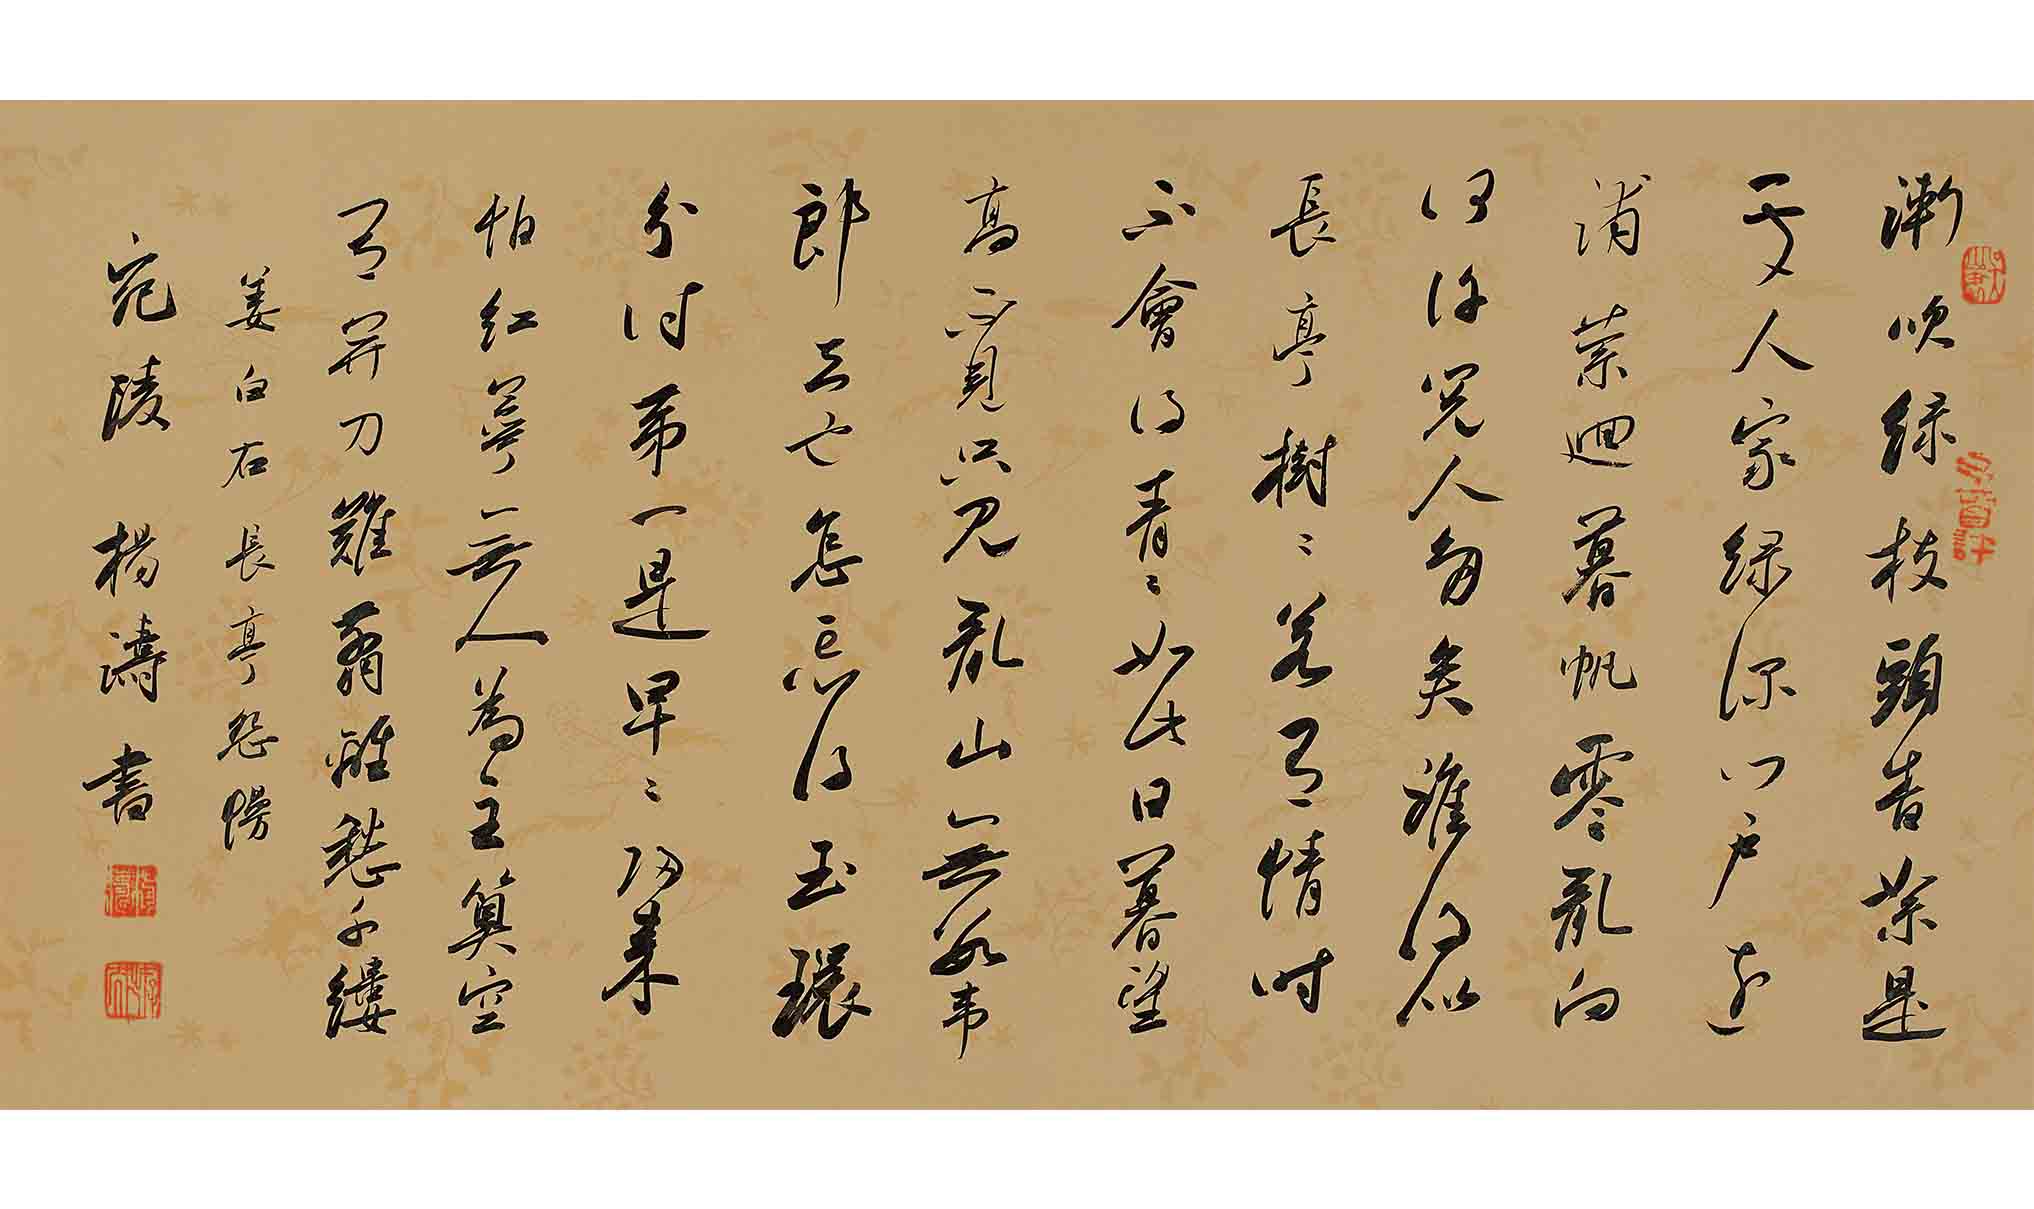 漸吹綠枝頭香絮是
處人家綠深門戶遠
浦縈迴暮帆零亂向
何許閱人多矣誰得似
長亭樹〻若有情時
不會得青〻如此日暮望
高不見只見亂山無數韋
郎去也怎忘得玉環
分付第一是早〻歸來
怕紅萼無人為主算空
有并刀難翦離愁千縷
姜白石長亭怨慢
宛陵楊濤書